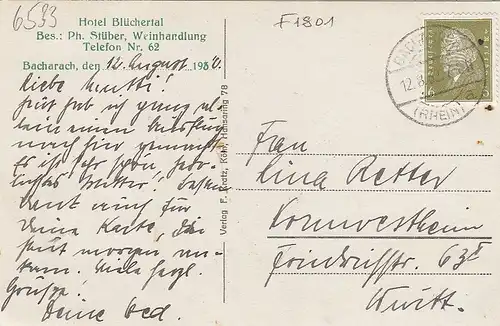 6533
Hotel Blüchertal
Bes.: Ph. Stüber, Weinhandlung
Telefon Nr. 62
Bacharach, den 12. August 1930.
Liebe Mutti!
Heut hab ich ganz al-
lein einen Ausflug
nach hier gemacht.
Es ist sehr schön,
Wetter! Besten
Dank auch für
Deine Karte, die
heut morgen an-
kam. Viele herzl.
Grüsse!
Deine Hed.
Verlag F. Kratz, Köln, Hansaring 78
F1801
BACHARACH
12.8.
(RHEIN)
Frau
Lina Retter
Kornwestheim
Friedrichstr. 63 I
Württ.